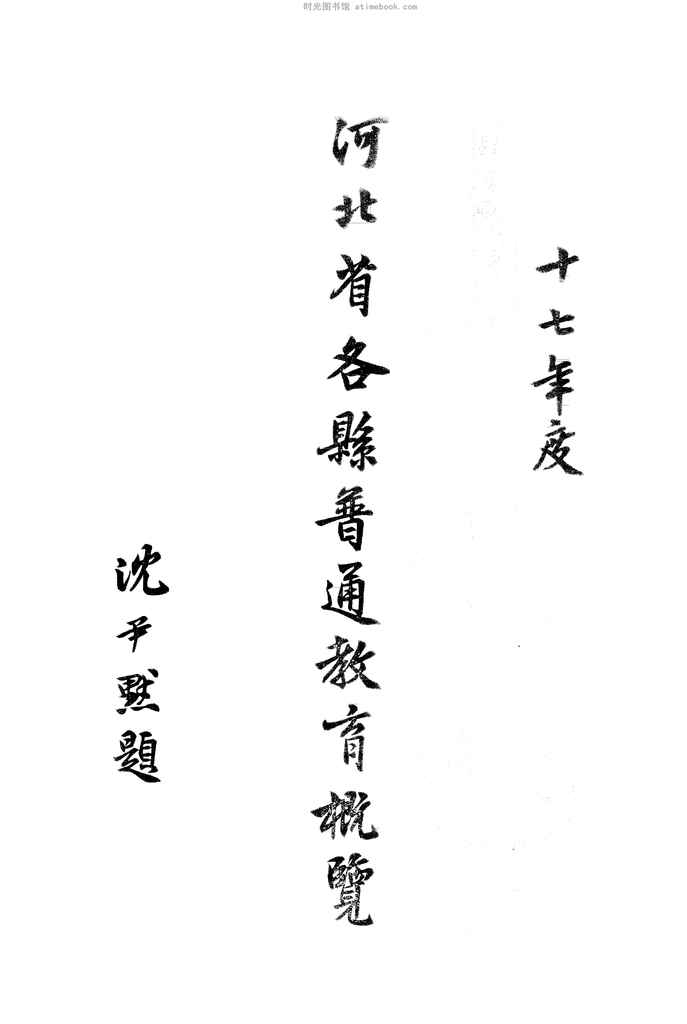 时光图书馆 atimebook.com
十七年度
河北省各縣普通教育概覽
沈尹默題